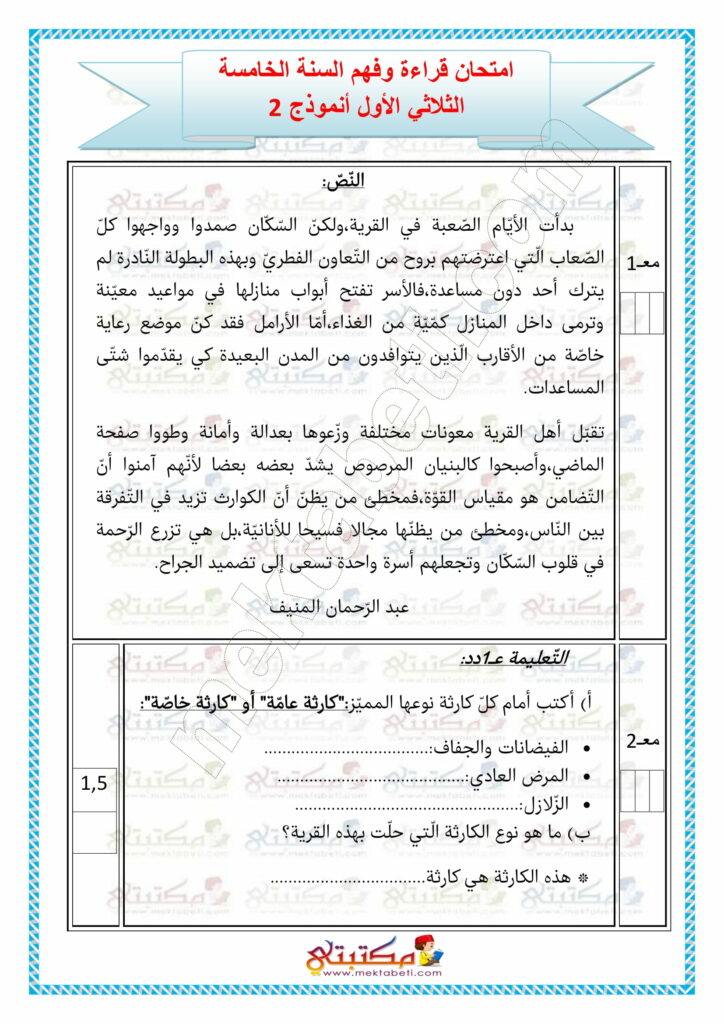 امتحان قراءة وفهم السنة الخامسة
الثلاثي الأول أنموذج 2
النّصّ:
معـ1
بدأت الأيّام الصّعبة في القرية،ولكنّ السّكّان صمدوا وواجهوا كلّ
الصّعاب الّتي اعترضتهم بروح من التّعاون الفطريّ وبهذه البطولة النّادرة لم
يترك أحد دون مساعدة،فالأسر تفتح أبواب منازلها في مواعيد معيّنة
وترمى داخل المنازل كمّيّة من الغذاء،أمّا الأرامل فقد كنّ موضع رعاية
خاصّة من الأقارب الّذين يتوافدون من المدن البعيدة كي يقدّموا شتّى
المساعدات.
تقبّل أهل القرية معونات مختلفة وزّعوها بعدالة وأمانة وطووا صفحة
الماضي،وأصبحوا كالبنيان المرصوص يشدّ بعضه بعضا لأنّهم آمنوا أنّ
التّضامن هو مقياس القوّة،فمخطئ من يظنّ أنّ الكوارث تزيد في التّفرقة
بين النّاس،ومخطئ من يظنّها مجالا فسيحا للأنانيّة،بل هي تزرع الرّحمة
في قلوب السّكّان وتجعلهم أسرة واحدة تسعى إلى تضميد الجراح.
عبد الرّحمان المنيف
التّعليمة عـ1دد:
أ) أكتب أمام كلّ كارثة نوعها المميّز:"كارثة عامّة" أو "كارثة خاصّة":
معـ2
• الفيضانات والجفاف:......................................
• المرض العادي:............................................
• الزّلازل:....................................................
1,5
ب) ما هو نوع الكارثة الّتي حلّت بهذه القرية؟
❊ هذه الكارثة هي كارثة....................................
مكتبتي
www.mektabeti.com
mektabeti.com